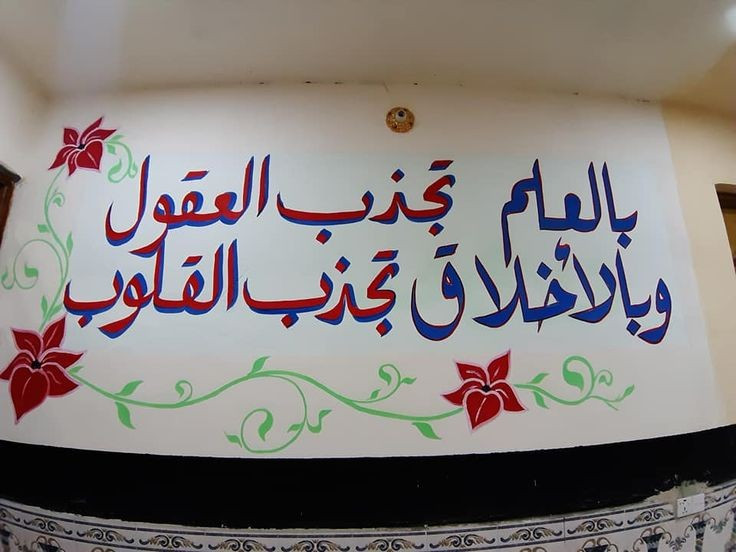 بالعلم تجذب العقول
وبالأخلاق تجذب القلوب